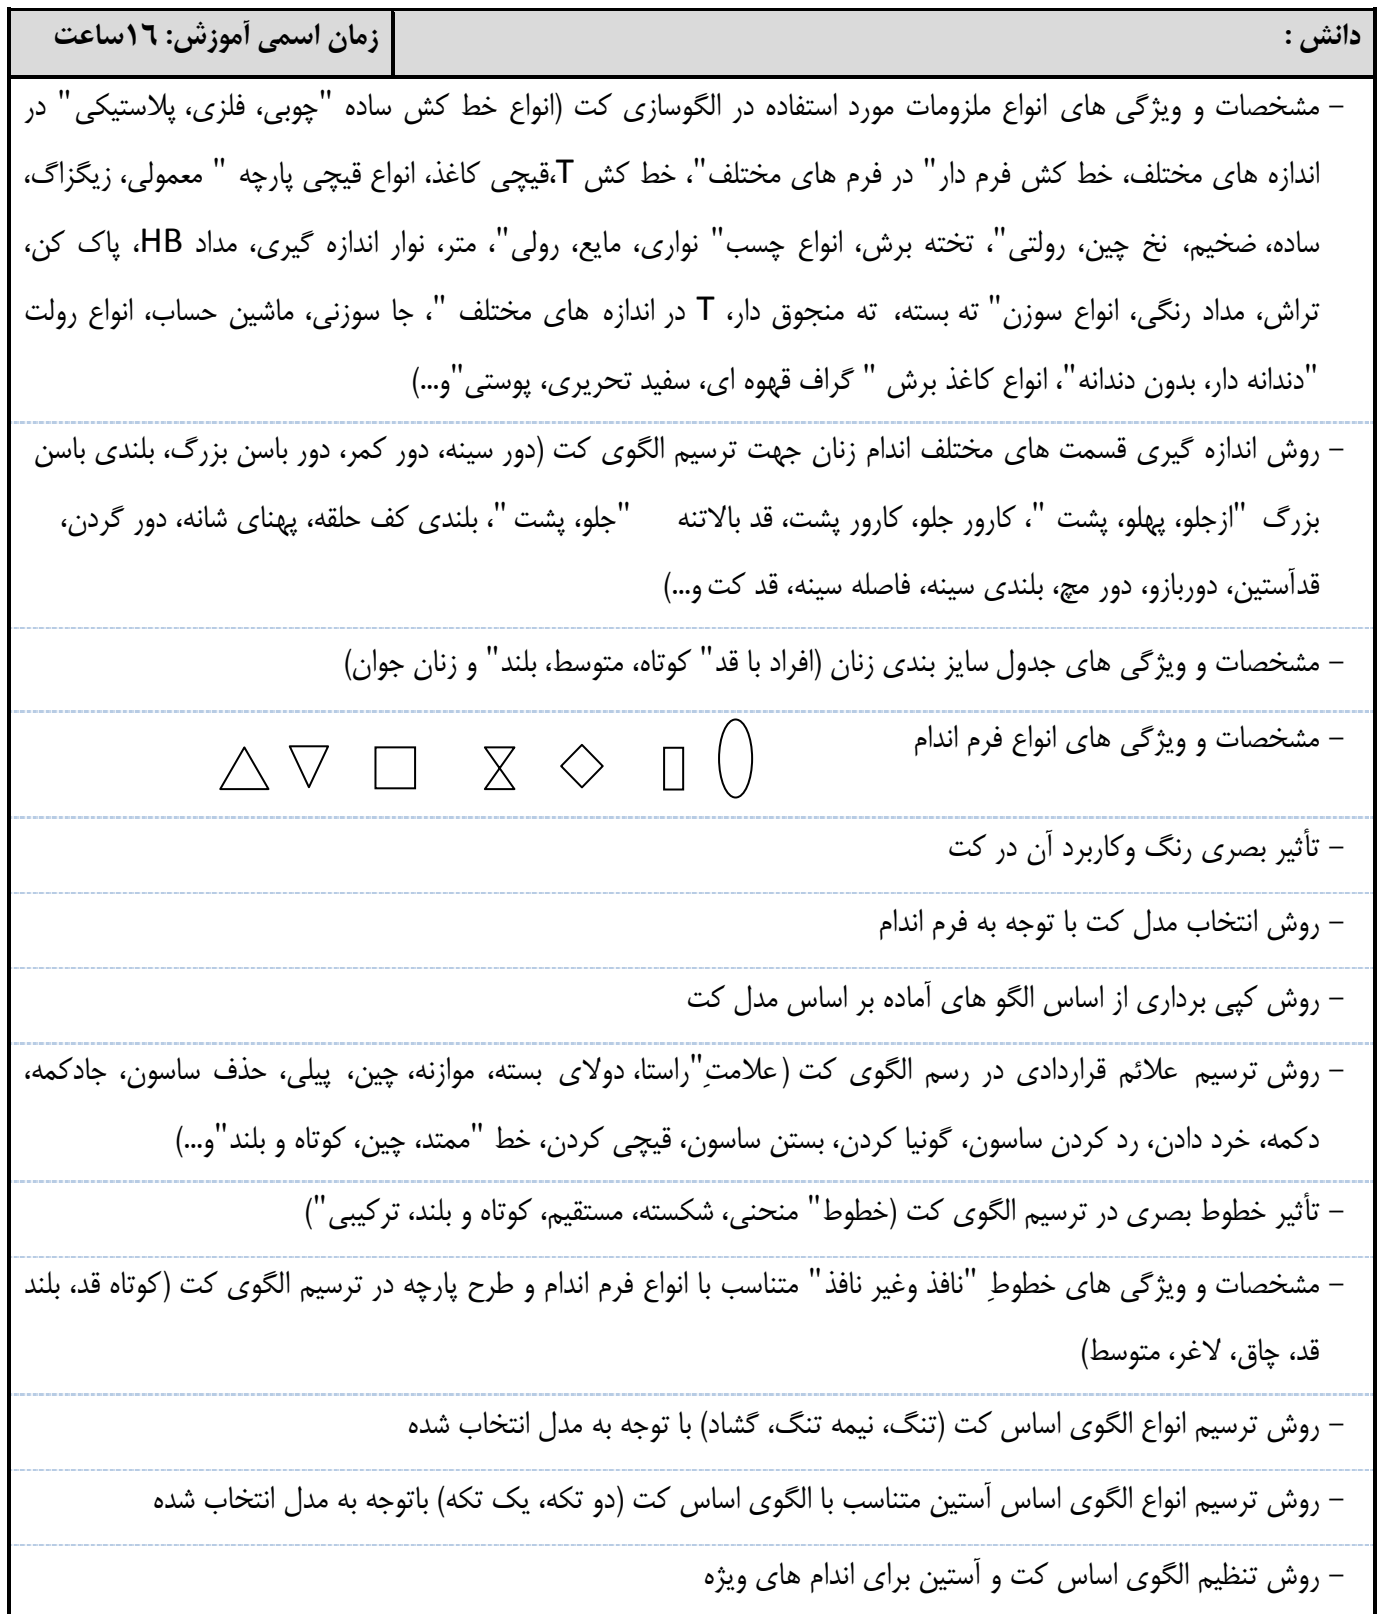 دانش :
زمان اسمی آموزش: ۱۶ساعت
– مشخصات و ویژگی های انواع ملزومات مورد استفاده در الگوسازی کت (انواع خط کش ساده "چوبی، فلزی، پلاستیکی" در
اندازه های مختلف، خط کش فرم دار" در فرم های مختلف"، خط کش T،قیچی کاغذ، انواع قیچی پارچه " معمولی، زیگزاگ،
ساده، ضخیم، نخ چین، رولتی"، تخته برش، انواع چسب" نواری، مایع، رولی"، متر، نوار اندازه گیری، مداد HB، پاک کن،
تراش، مداد رنگی، انواع سوزن" ته بسته، ته منجوق دار، T در اندازه های مختلف "، جا سوزنی، ماشین حساب، انواع رولت
"دندانه دار، بدون دندانه"، انواع کاغذ برش " گراف قهوه ای، سفید تحریری، پوستی"و...)
– روش اندازه گیری قسمت های مختلف اندام زنان جهت ترسیم الگوی کت (دور سینه، دور کمر، دور باسن بزرگ، بلندی باسن
بزرگ "ازجلو، پهلو، پشت "، کارور جلو، کارور پشت، قد بالاتنه "جلو، پشت "، بلندی کف حلقه، پهنای شانه، دور گردن،
قدآستین، دوربازو، دور مچ، بلندی سینه، فاصله سینه، قد کت و...)
– مشخصات و ویژگی های جدول سایز بندی زنان (افراد با قد" کوتاه، متوسط، بلند" و زنان جوان)
– مشخصات و ویژگی های انواع فرم اندام
– تأثیر بصری رنگ وکاربرد آن در کت
– روش انتخاب مدل کت با توجه به فرم اندام
– روش کپی برداری از اساس الگو های آماده بر اساس مدل کت
– روش ترسیم علائم قراردادی در رسم الگوی کت (علامتِ"راستا، دولای بسته، موازنه، چین، پیلی، حذف ساسون، جادکمه،
دکمه، خرد دادن، رد کردن ساسون، گونیا کردن، بستن ساسون، قیچی کردن، خط "ممتد، چین، کوتاه و بلند"و...)
– تأثیر خطوط بصری در ترسیم الگوی کت (خطوط" منحنی، شکسته، مستقیم، کوتاه و بلند، ترکیبی")
– مشخصات و ویژگی های خطوطِ "نافذ وغیر نافذ" متناسب با انواع فرم اندام و طرح پارچه در ترسیم الگوی کت (کوتاه قد، بلند
قد، چاق، لاغر، متوسط)
– روش ترسیم انواع الگوی اساس کت (تنگ، نیمه تنگ، گشاد) با توجه به مدل انتخاب شده
– روش ترسیم انواع الگوی اساس آستین متناسب با الگوی اساس کت (دو تکه، یک تکه) باتوجه به مدل انتخاب شده
– روش تنظیم الگوی اساس کت و آستین برای اندام های ویژه